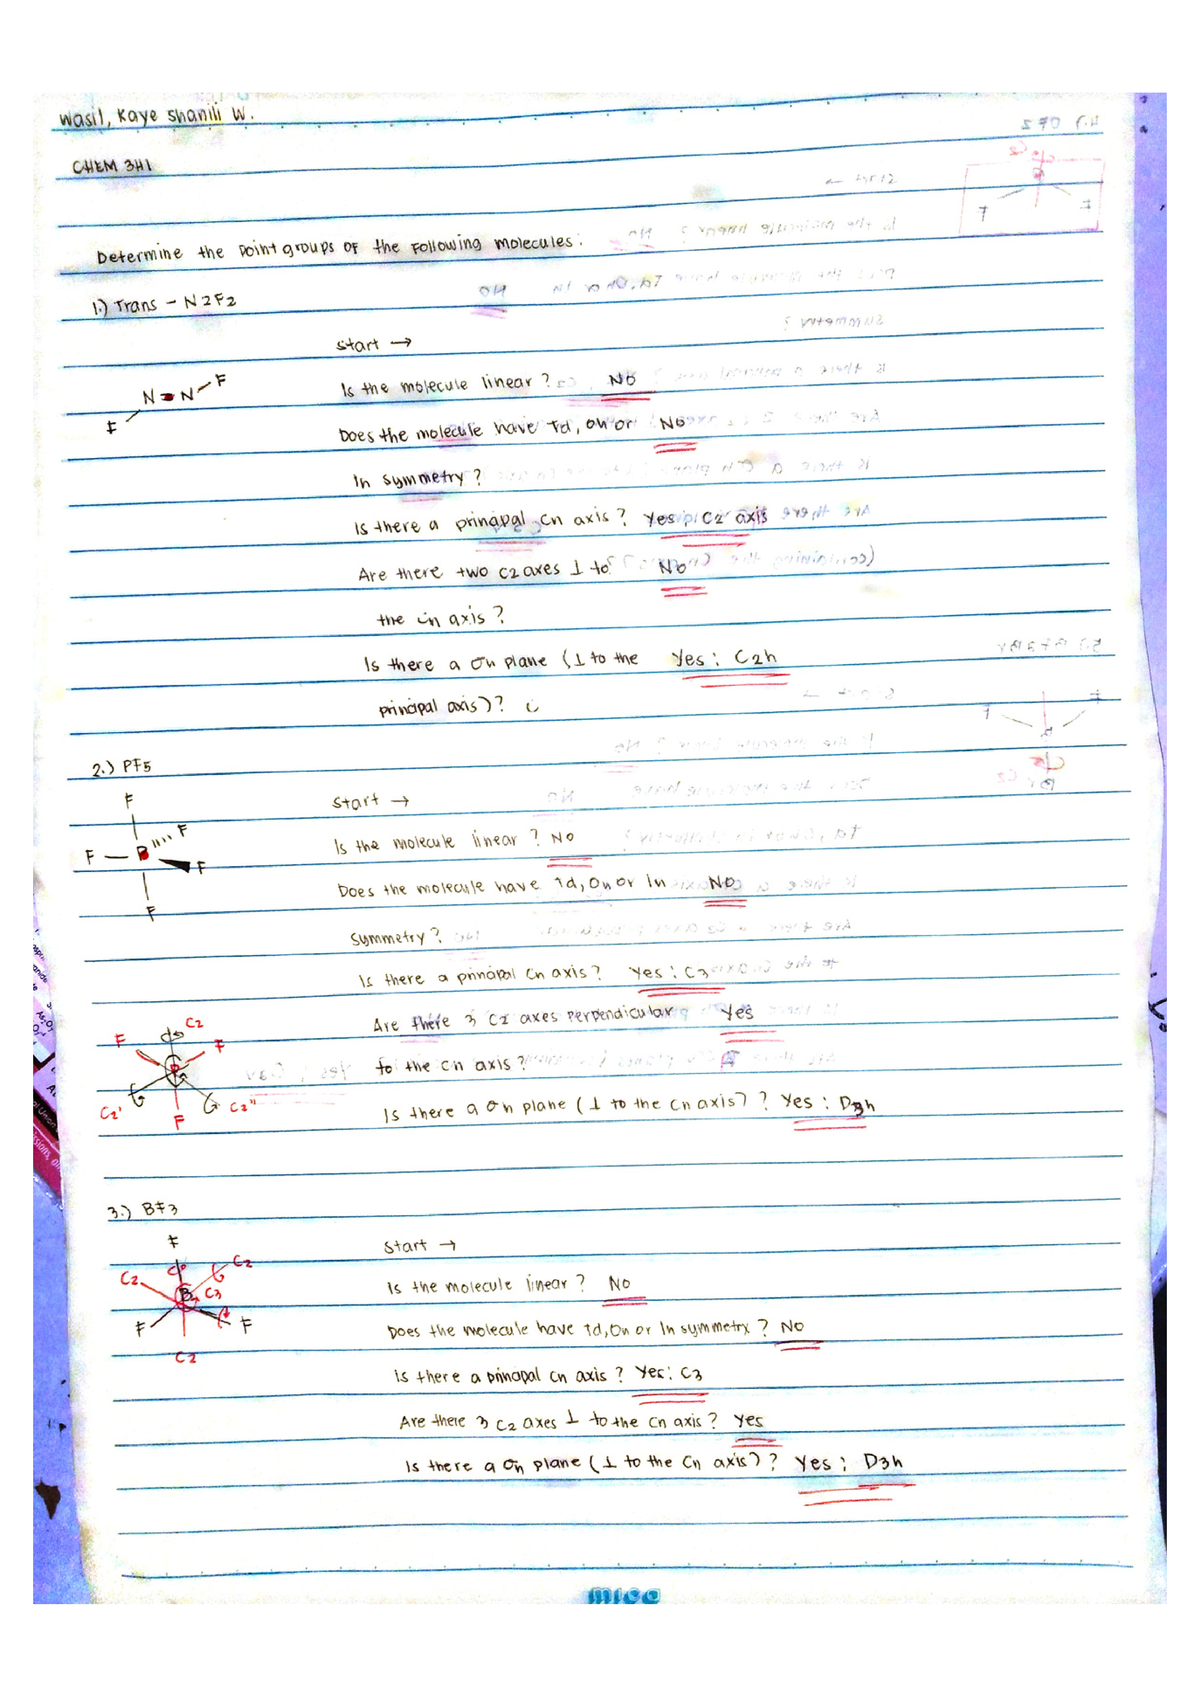 Wasil, Kaye Shanili W.
CHEM 3H1
Determine the point groups of the following molecules:
1.) Trans - N2F2
Start →
N = N F
F
Is the molecule linear? No
Does the molecule have Td, Oh or No
Ih symmetry?
Is there a principal Cn axis? Yes: C2 axis
Are there two C2 axes ⊥ to No
the Cn axis?
Is there a σh plane (⊥ to the Yes: C2h
principal axis)?
2.) PF5
Start →
F
F P F
F
F
Is the molecule linear? No
Does the molecule have Td, Oh or Ih No
symmetry?
Is there a principal Cn axis? Yes: C3
Are there 3 C2 axes perpendicular Yes
to the Cn axis?
Is there a σh plane (⊥ to the Cn axis)? Yes: D3h
C2
F F
P
C2' C2"
F
3.) BF3
F
Start →
C2 C2
B C3
F F
C2
Is the molecule linear? No
Does the molecule have Td, Oh or Ih symmetry? No
Is there a principal Cn axis? Yes: C3
Are there 3 C2 axes ⊥ to the Cn axis? Yes
Is there a σh plane (⊥ to the Cn axis)? Yes: D3h
mica